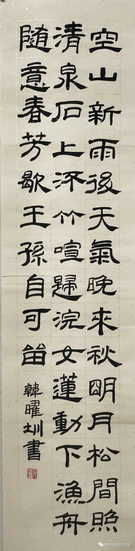 空山新雨後天氣晚來秋朙月松間照
清泉石上流竹喧歸浣女蓮動下漁舟
随意春芳歇王孫自可留
韓曜圳書